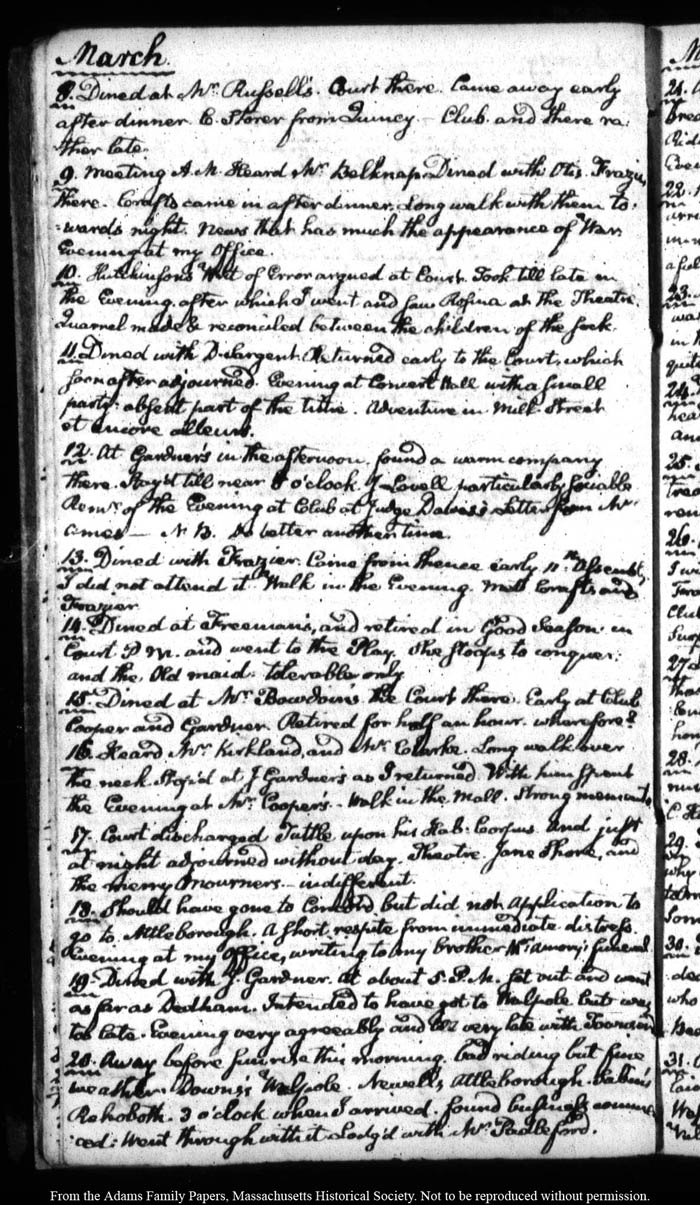 March.
8. Dined at Mr. Russell's. Court there. Came away early
after dinner. C. Storer from Quincy — Club. and there ra-
ther late.
9. Meeting A.M. Heard Mr Belknap. Dined with Otis. Frazier
there. Crafts came in after dinner. Long walk with them to-
-wards night. News that has much the appearance of War.
Evening at my Office.
10. Hutchinson's Writ of Error argued at Court. Took till late in
the Evening. after which I went and saw Rosina at the Theatre.
Quarrel made & reconciled between the children of the sock.
11. Dined with D. Sargent. Returned early to the Court, which
soon after adjourned. Evening at Concert Hall with a small
party: absent part of the time. Adventure in Milk Street
et encore ailleurs.
12. At Gardner's in the afternoon. found a warm company
there. Stay'd till near 8 o'clock. J. Lovell particularly sociable
Remr. of the Evening at Club at Judge Dawes's Letter from Mr
Ames — N.B. do better another time.
13. Dined with Frazier. Came from thence early
I did not attend it. Walk in the Evening. Crafts and
Frazier.
14. Dined at Freeman's, and retired in Good Season. in
Court P.M. and went to the Play. She stoops to conquer:
and the Old maid: tolerable only.
15. Dined at Mr. Bowdoin's the Court there. Early at Club
Cooper and Gardner. Retired for half an hour. wherefore?
16. Heard Mr. Kirkland, and Mr. Clarke. Long walk over
the neck. Stop'd at J. Gardner's as I returned. With him spent
the Evening at Mr. Cooper's. Walk in the Mall. Strong
17. Court discharged Tuttle upon his Hab: Corpus. And just
at night adjourned without day. Theatre. Jane Shore, and
the merry Mourners. — indifferent.
18. Should have gone to Concord but did not. Application to
go to Attleborough. A short respite from immediate distress.
Evening at my Office, writing to my brother funeral
19. Dined with J. Gardner. at about 5. P.M. set out and went
as far as Dedham. Intended to have got to Walpole but was
too late. Evening very agreeably and till very late with
20. Away before sunrise this morning. bad riding but fine
weather. Walpole. Newell's Attleborough.
Rehoboth. 3 o'clock when I arrived. found business commen
ced: Went through with it Lodg'd with Mr. Padleford.
From the Adams Family Papers, Massachusetts Historical Society. Not to be reproduced without permission.